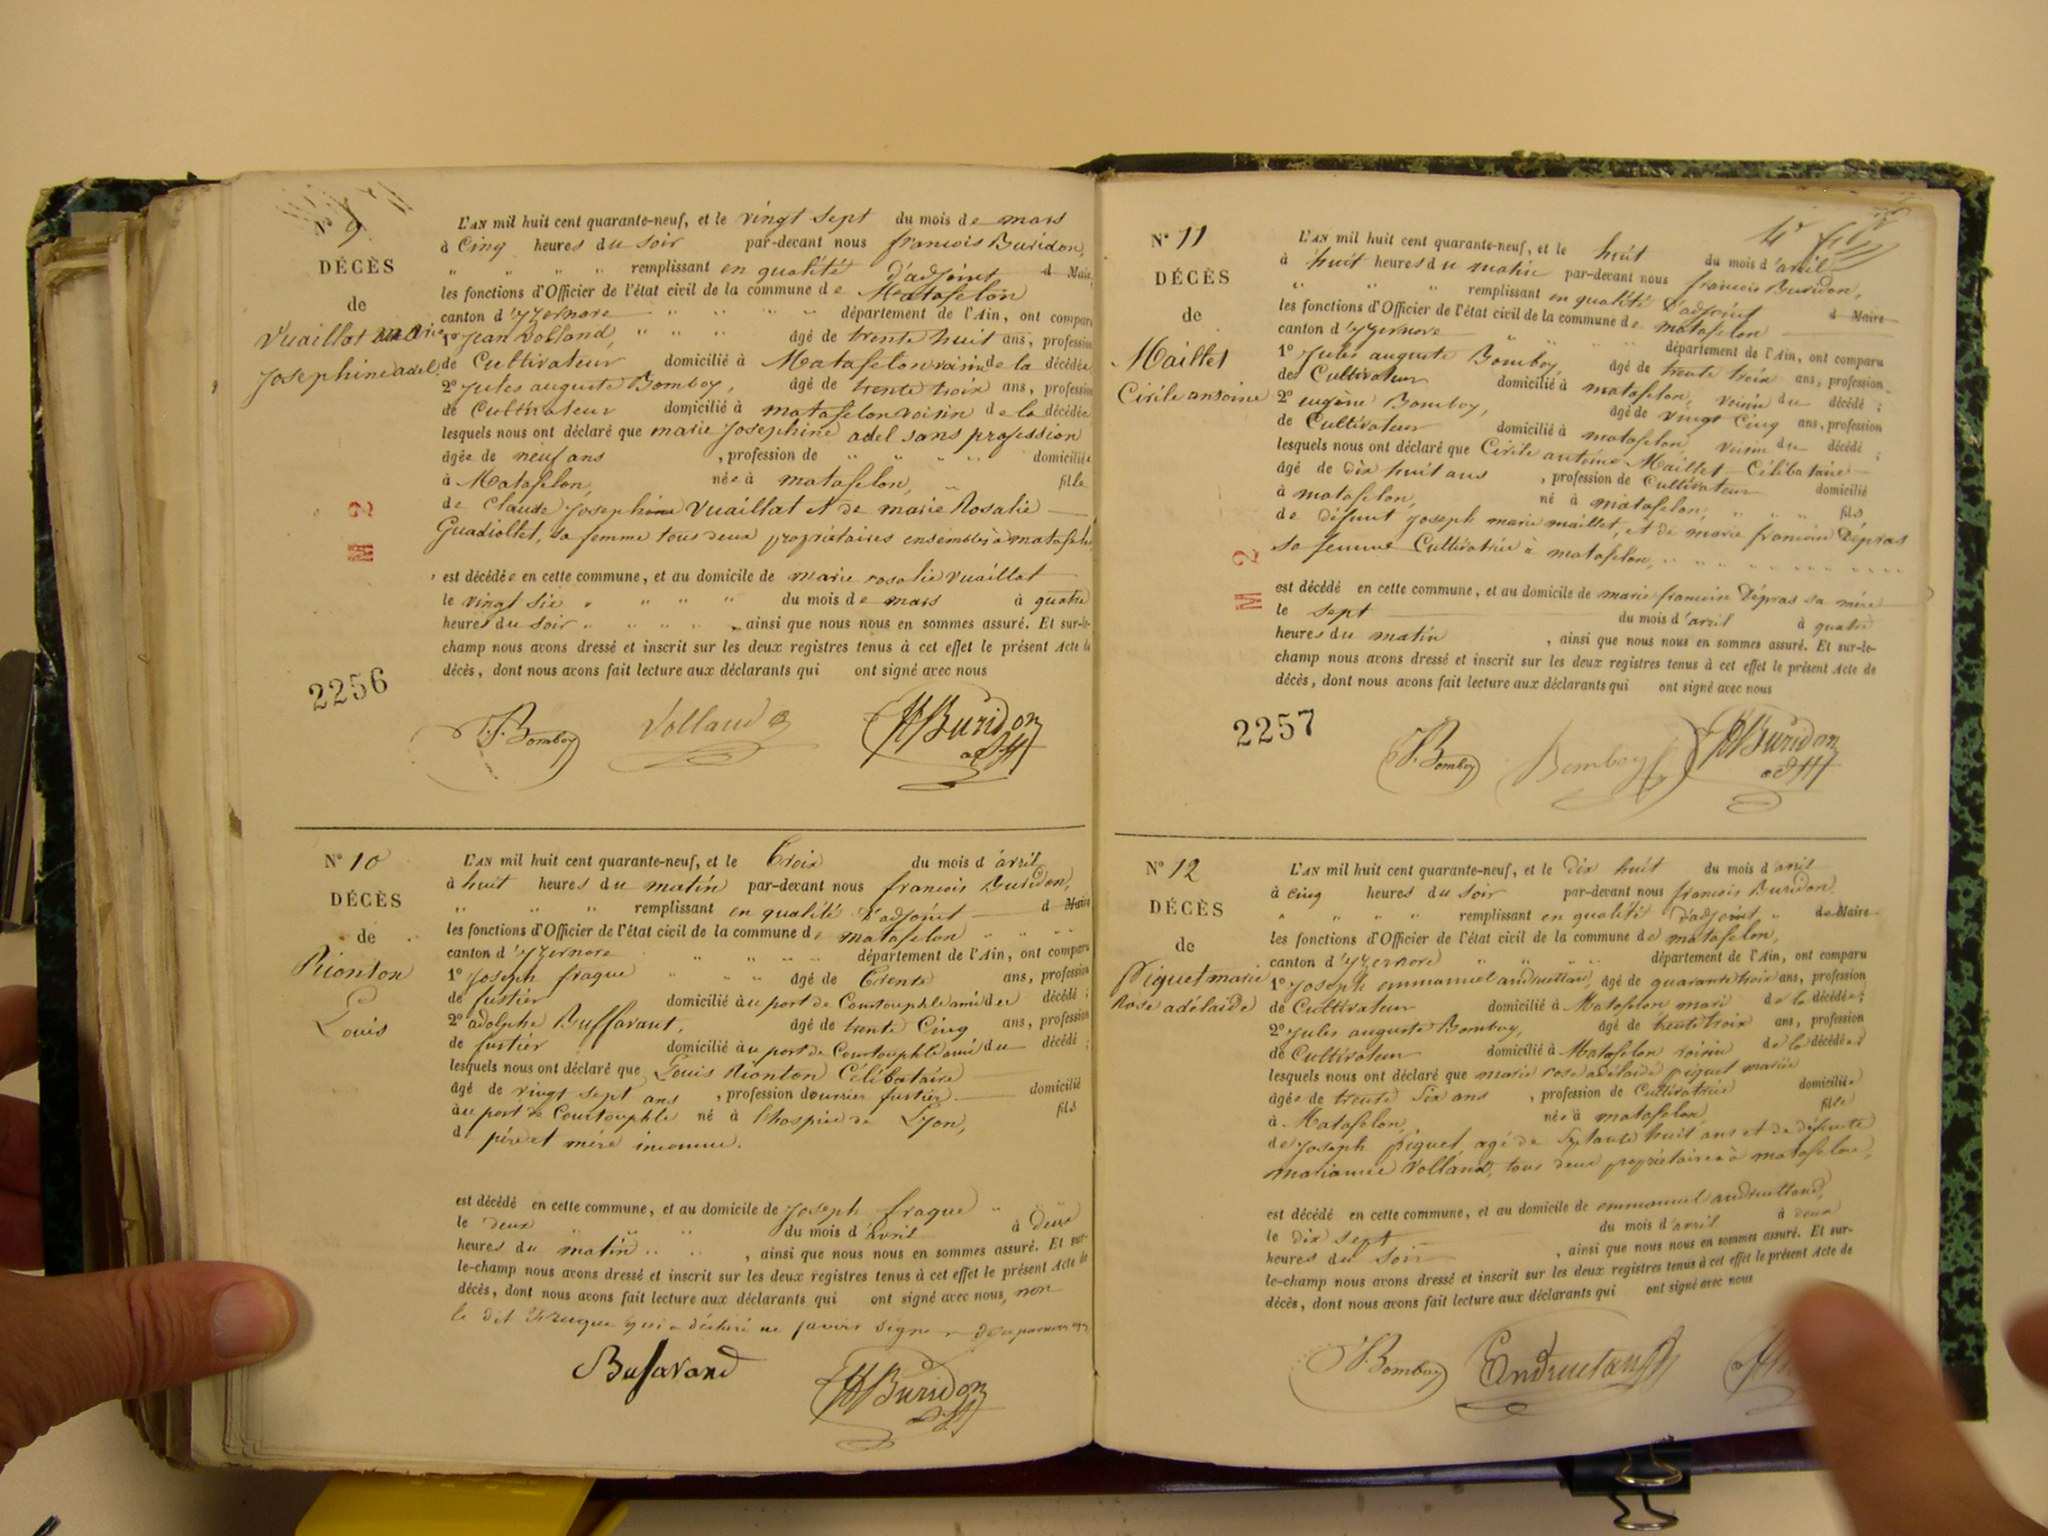 N° 9
DÉCÈS
de
Vuaillat marie
Josephine adel.
L'AN mil huit cent quarante-neuf, et le vingt sept du mois de mars
à Cinq heures du soir par-devant nous francois Buridon,
" " " " remplissant en qualité d'adjoint d Maire
les fonctions d'Officier de l'état civil de la commune de Matafelon
canton d'yzernore " " " " département de l'Ain, ont comparu
1° Jean Volland, " " " âgé de trente huit ans, profession
de Cultivateur domicilié à Matafelon voisin de la décédée
2° Jules auguste Bomboy, âgé de trente trois ans, profession
de Cultivateur domicilié à matafelon voisin de la décédée
lesquels nous ont déclaré que marie Josephine adel sans profession
âgée de neuf ans , profession de " " " " domiciliée
à Matafelon, née à matafelon, " fille
de Claude Joseph Vuaillat et de marie Rosalie
Guadiollet, sa femme tous deux propriétaires ensembles à matafelon
est décédée en cette commune, et au domicile de marie rosalie Vuaillat
le vingt six " " " " du mois de mars à quatre
heures du soir " " " " ainsi que nous nous en sommes assuré. Et sur-le-
champ nous avons dressé et inscrit sur les deux registres tenus à cet effet le présent Acte de
décès, dont nous avons fait lecture aux déclarants qui ont signé avec nous
M 2
2256
Bomboy Volland Buridon
adjt
N° 10
DÉCÈS
de
Rionton
Louis
L'AN mil huit cent quarante-neuf, et le Trois du mois d'avril
à huit heures du matin par-devant nous francois Buridon,
" " " remplissant en qualité d'adjoint d Maire
les fonctions d'Officier de l'état civil de la commune de matafelon " " "
canton d'yzernore " " " " département de l'Ain, ont comparu
1° Joseph fraque " " " âgé de Trente ans, profession
de fustier domicilié au port de Courtouphle ami du décédé ;
2° adolphe Buffavant, âgé de trente Cinq ans, profession
de fustier domicilié au port de Courtouphle ami du décédé ;
lesquels nous ont déclaré que Louis Rionton Célibataire
âgé de vingt sept ans , profession d'ouvrier fustier domicilié
au port de Courtouphle né à l'hospice de Lyon, fils
de père et mère inconnue.
est décédé en cette commune, et au domicile de Joseph fraque " "
le deux " " " du mois d'avril à Deux
heures du matin " " , ainsi que nous nous en sommes assuré. Et sur-
le-champ nous avons dressé et inscrit sur les deux registres tenus à cet effet le présent Acte de
décès, dont nous avons fait lecture aux déclarants qui ont signé avec nous, non
le dit fraque qui a déclaré ne savoir signer
Bufavand Buridon
adjt
N° 11
DÉCÈS
de
Maillet
Cirile antoine
L'AN mil huit cent quarante-neuf, et le huit du mois d'avril
à huit heures du matin par-devant nous francois Buridon,
" " " remplissant en qualité d'adjoint d Maire
les fonctions d'Officier de l'état civil de la commune de matafelon
canton d'yzernore " " " département de l'Ain, ont comparu
1° Jules auguste Bomboy, âgé de trente trois ans, profession
de Cultivateur domicilié à matafelon, voisin du décédé ;
2° eugène Bomboy, âgé de vingt Cinq ans, profession
de Cultivateur domicilié à matafelon voisin du décédé ;
lesquels nous ont déclaré que Cirile antoine Maillet Célibataire
âgé de dix huit ans , profession de Cultivateur domicilié
à matafelon, né à matafelon, " " " fils
de défunt Joseph marie maillet, et de marie francoise Dépras
sa femme Cultivatrice à matafelon,
est décédé en cette commune, et au domicile de marie francoise Dépras sa mère
le sept du mois d'avril à quatre
heures du matin , ainsi que nous nous en sommes assuré. Et sur-le-
champ nous avons dressé et inscrit sur les deux registres tenus à cet effet le présent Acte de
décès, dont nous avons fait lecture aux déclarants qui ont signé avec nous
M 2
2257
Bomboy Bomboy Buridon
adjt
N° 12
DÉCÈS
de
Piguet marie
Rose adélaïde
L'AN mil huit cent quarante-neuf, et le Dix huit du mois d'avril
à cinq heures du soir par-devant nous francois Buridon
" " " " remplissant en qualité d'adjoint " de Maire
les fonctions d'Officier de l'état civil de la commune de matafelon,
canton d'yzernore " " " département de l'Ain, ont comparu
1° Joseph emmanuel , âgé de quarante trois ans, profession
de Cultivateur domicilié à Matafelon mari de la décédée ;
2° Jules auguste Bomboy, âgé de trente trois ans, profession
de Cultivateur domicilié à Matafelon voisin de la décédée ;
lesquels nous ont déclaré que marie rose adélaïde piguet mariée
âgée de trente Six ans , profession de Cultivatrice domiciliée
à Matafelon, née à matafelon, fille
de Joseph piguet agé de huit ans et de défunte
marianne Volland, tous deux propriétaires à matafelon,
est décédée en cette commune, et au domicile de emmanuel
le dix sept du mois d'avril à deux
heures du Soir , ainsi que nous nous en sommes assuré. Et sur-
le-champ nous avons dressé et inscrit sur les deux registres tenus à cet effet le présent Acte de
décès, dont nous avons fait lecture aux déclarants qui ont signé avec nous
Bomboy